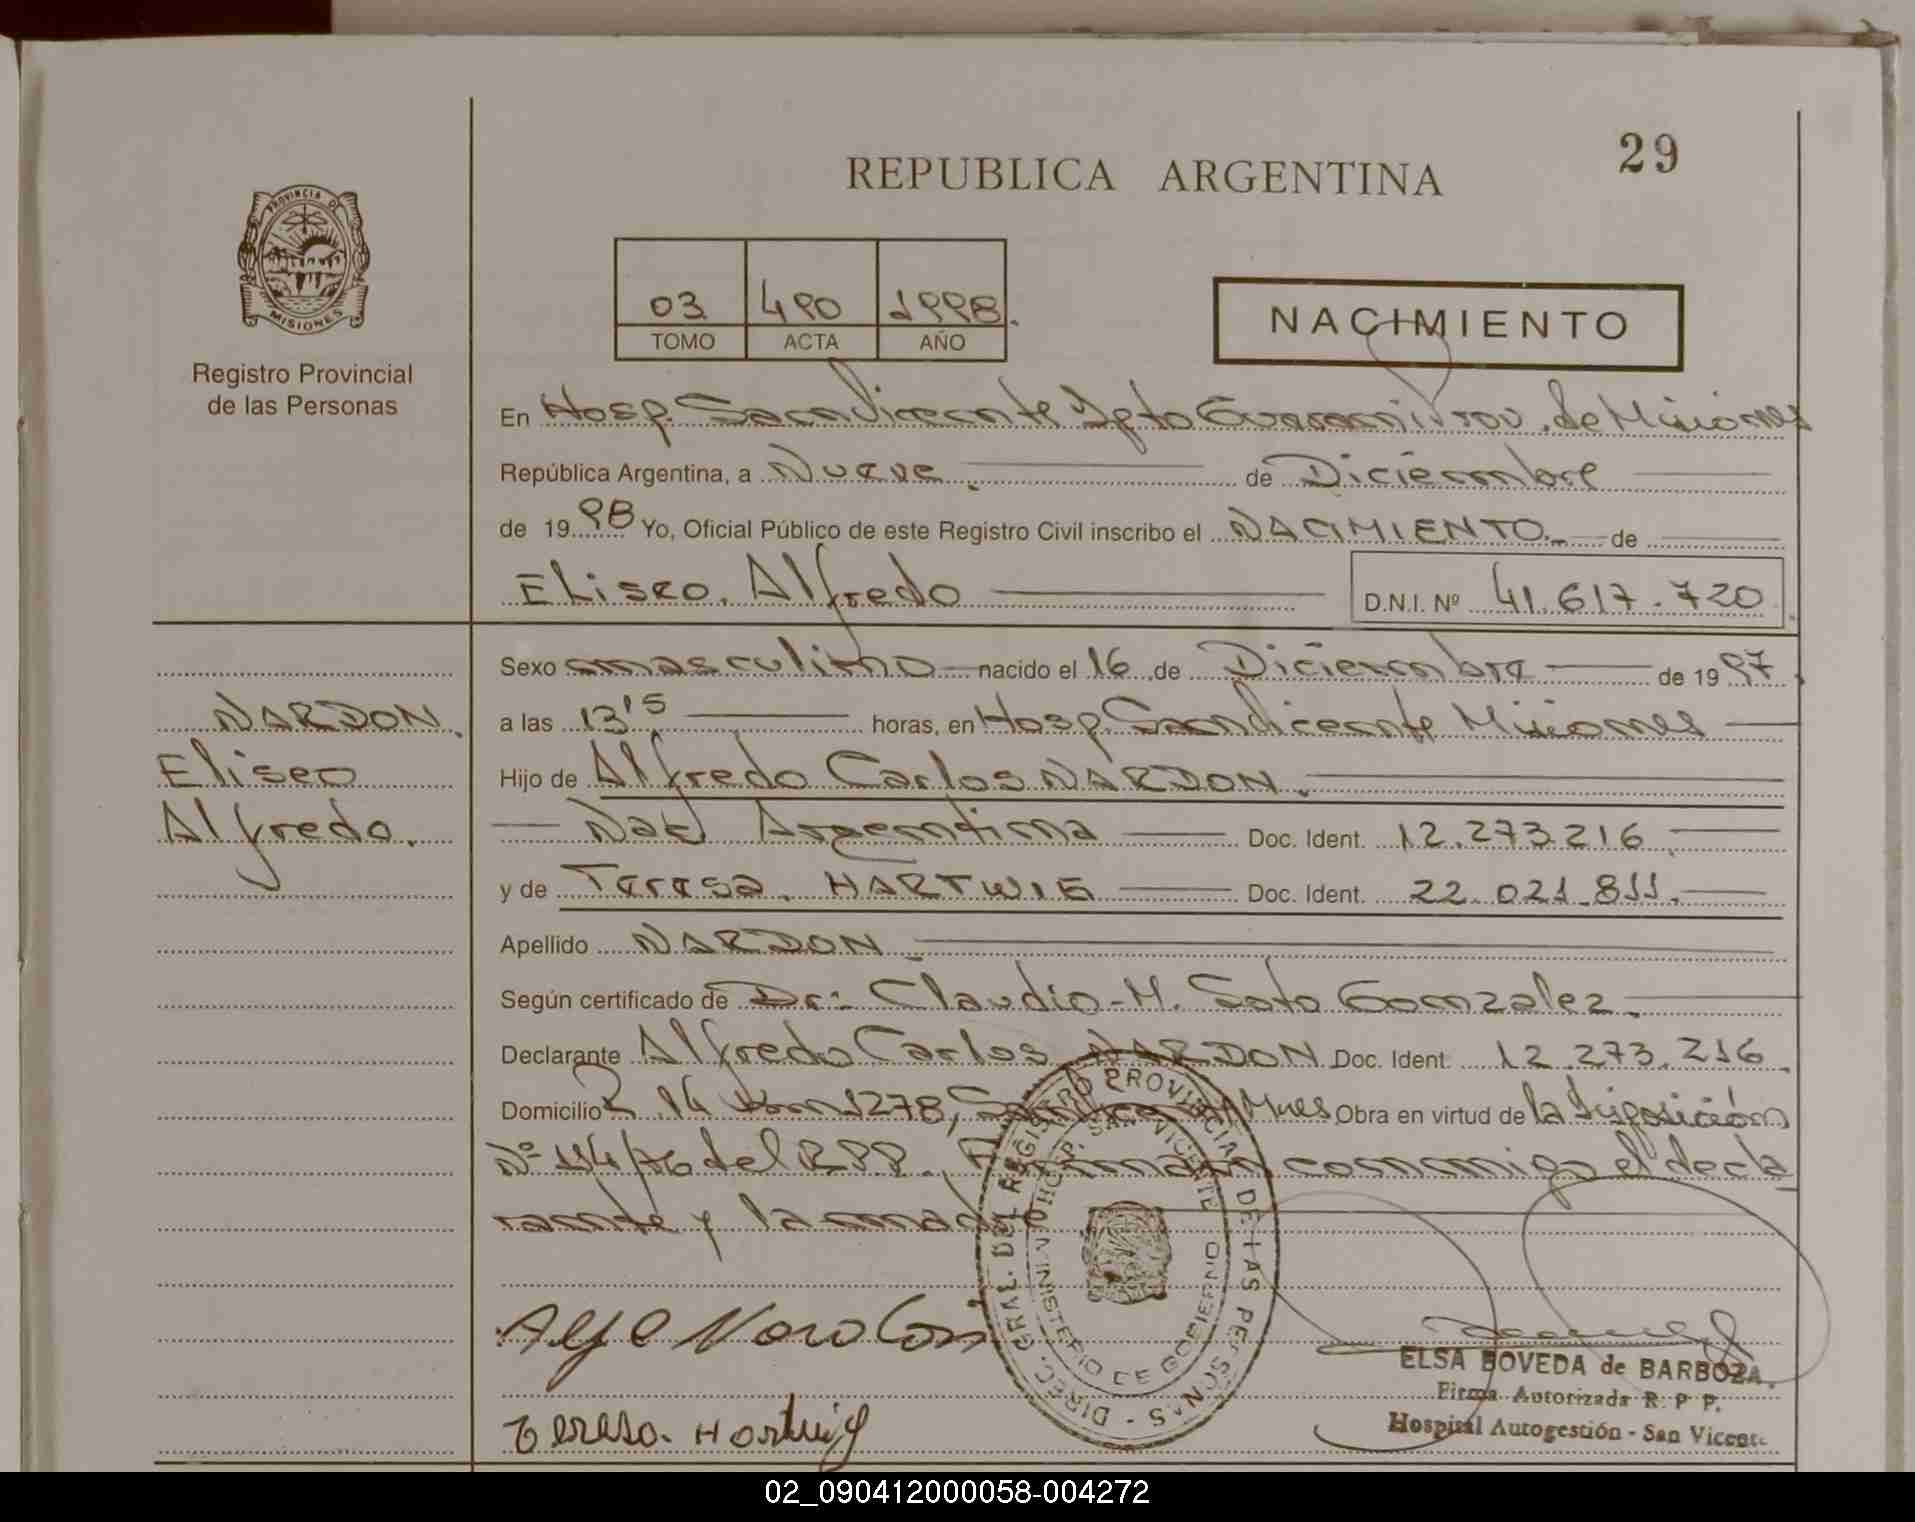 29
REPUBLICA ARGENTINA
PROVINCIA DE
MISIONES
Registro Provincial
de las Personas
03 490 1998.
TOMO ACTA AÑO
NACIMIENTO
En Hosp. San Vicente Dpto Guarani Prov. de Misiones
República Argentina, a Nueve. de Diciembre
de 1998 Yo, Oficial Público de este Registro Civil inscribo el NACIMIENTO. de
Eliseo. Alfredo D.N.I. Nº 41.617.720
NARDON.
Eliseo
Alfredo.
Sexo masculino nacido el 16 de Diciembre de 1997
a las 13'5 horas, en Hosp San Vicente Misiones
Hijo de Alfredo Carlos NARDON.
Nac Argentina Doc. Ident. 12.273.216
y de Teresa. HARTWIG Doc. Ident. 22.021.811.
Apellido NARDON
Según certificado de Dr: Claudio-M. Soto Gonzalez.
Declarante Alfredo Carlos NARDON Doc. Ident. 12.273.216
Domicilio R 14 Km 1278, San Vicente Mnes Obra en virtud de la Disposición
Nº 114/76 del R.P.P., Firman conmigo el decla
rante y la madre
DIREC. GRAL. DEL REGISTRO PROVINCIAL DE LAS PERSONAS -
HOSP. SAN VICENTE
MINISTERIO DE GOBIERNO
Teresa. Hartwig
ELSA BOVEDA de BARBOZA.
Firma Autorizada R. P. P.
Hospital Autogestión - San Vicente
02_090412000058-004272